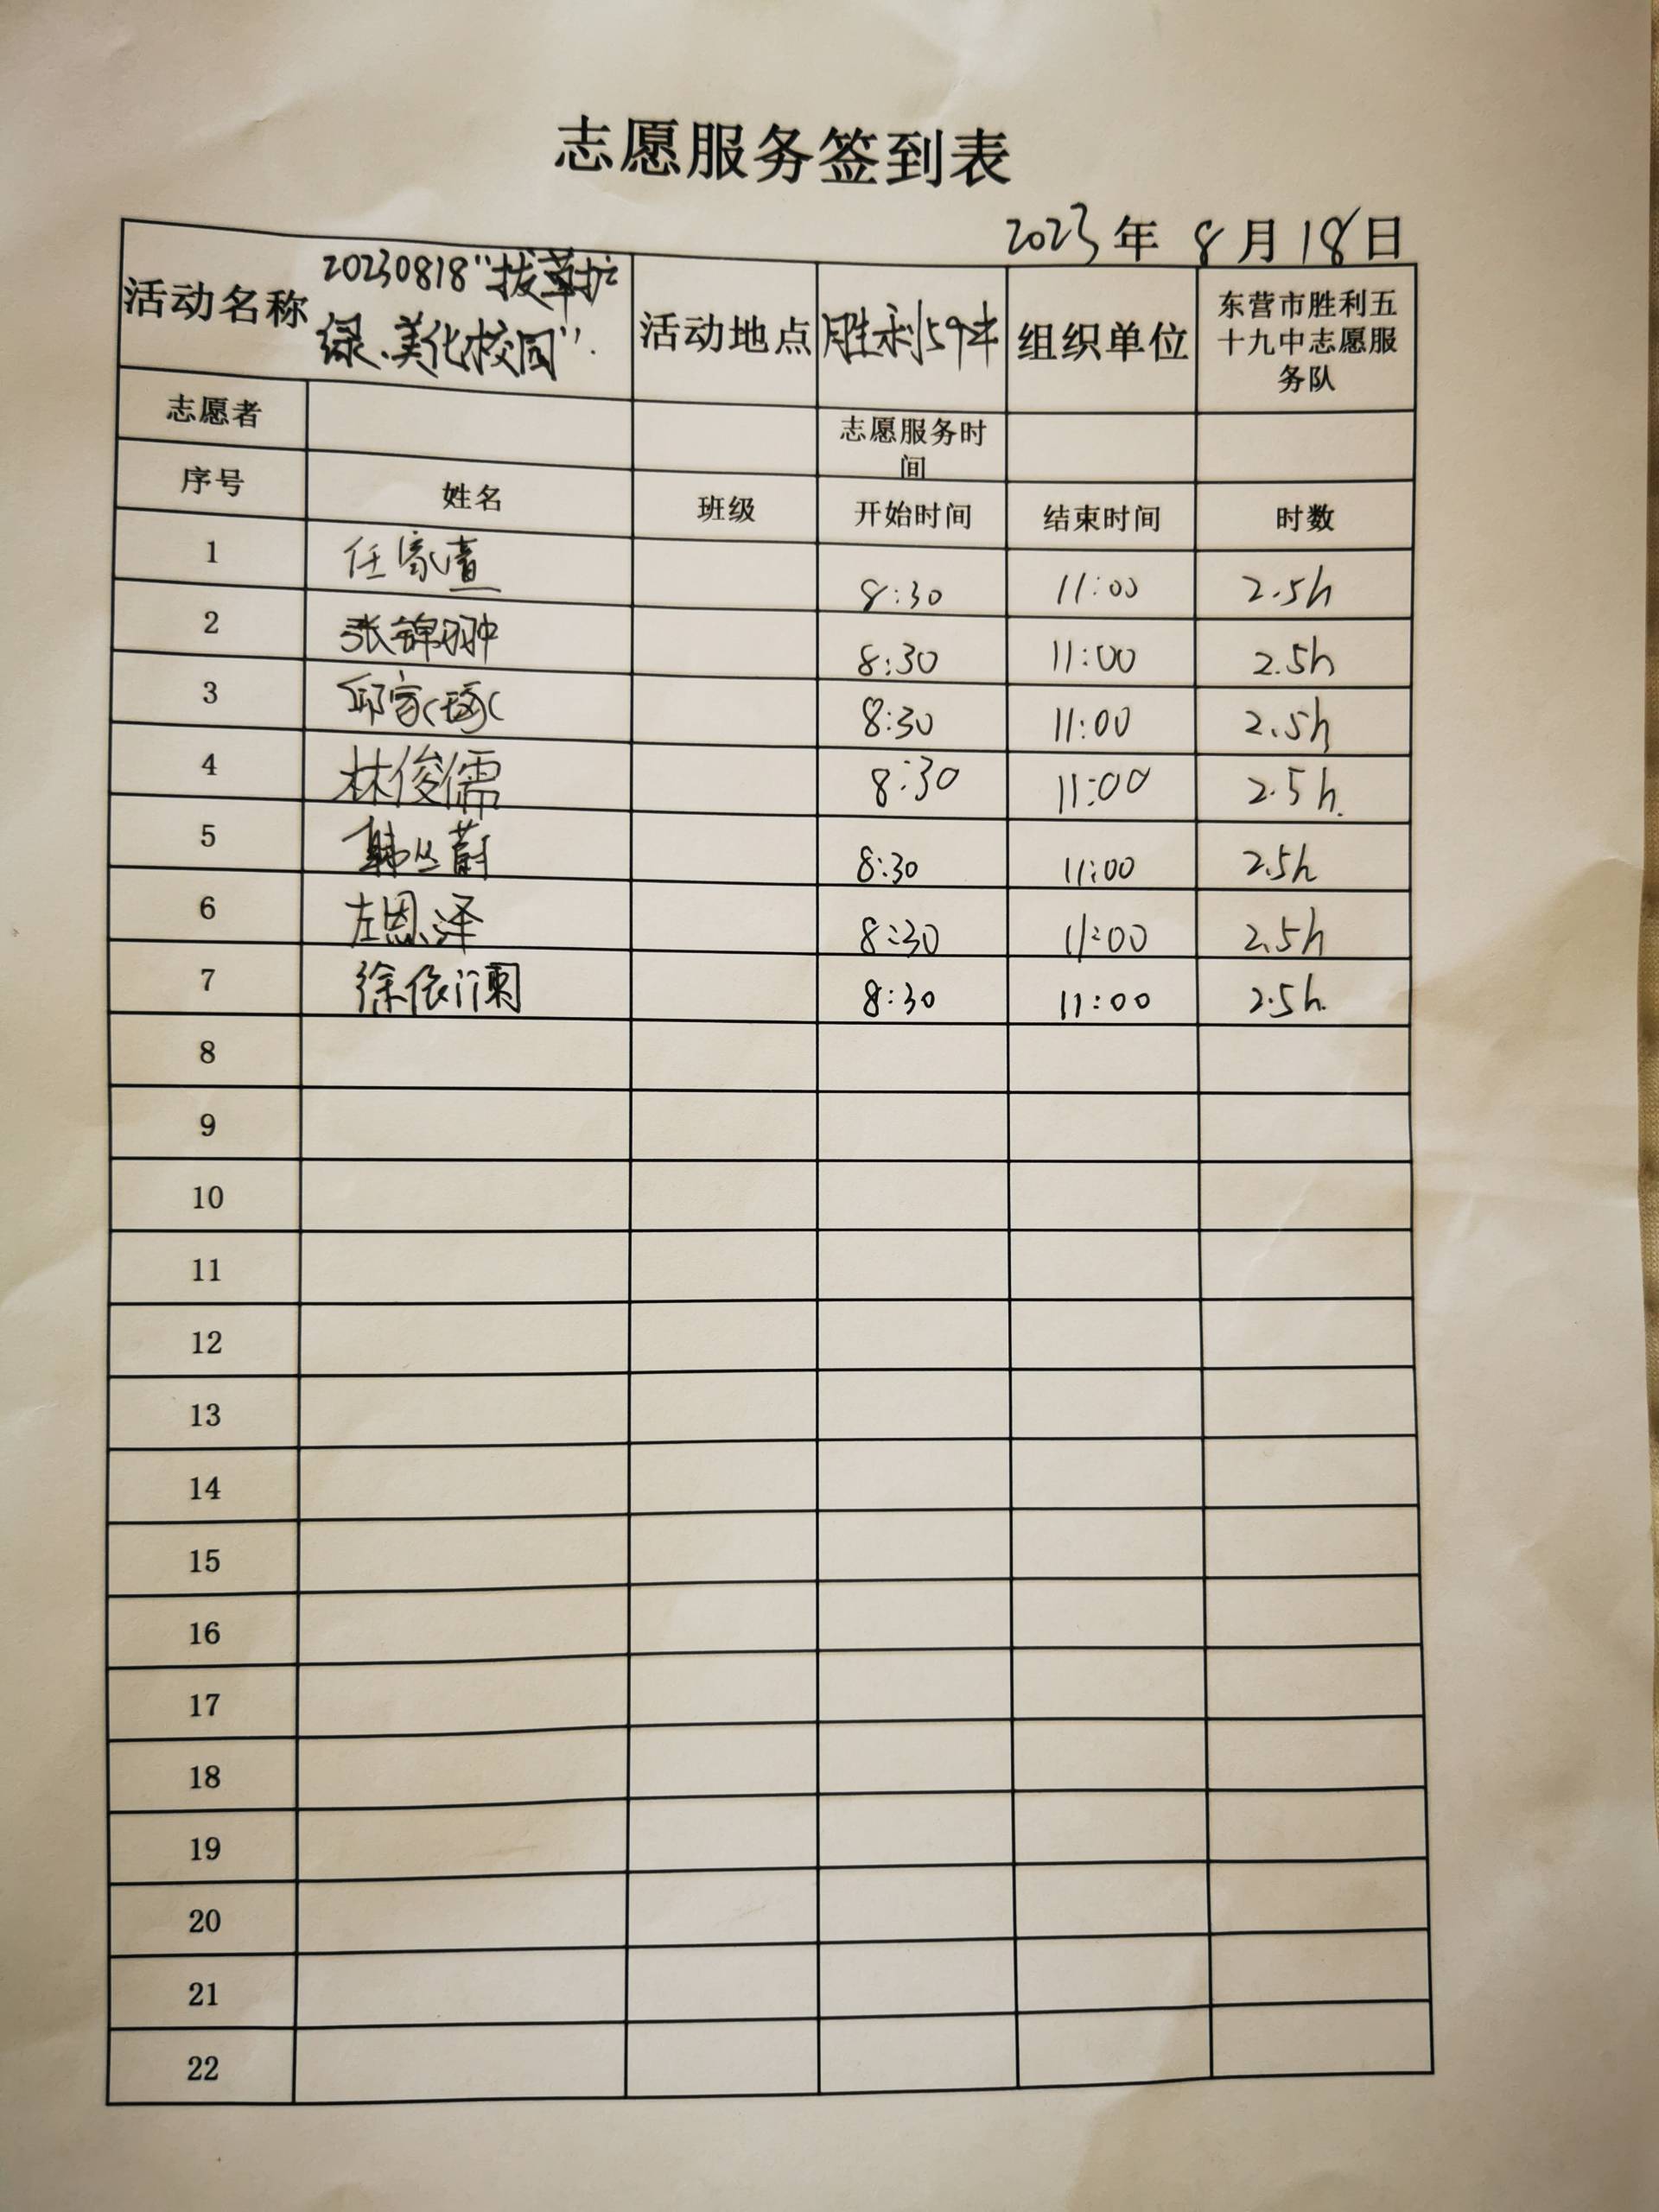 志愿服务签到表
2023年 8月18日
活动名称 20230818"拔草扩绿、美化校园". 活动地点 胜利59中 组织单位 东营市胜利五十九中志愿服务队
志愿者 志愿服务时间
序号 姓名 班级 开始时间 结束时间 时数
1 任家 8:30 11:00 2.5h
2 张锦翀 8:30 11:00 2.5h
3 邱家琢 8:30 11:00 2.5h
4 林俊儒 8:30 11:00 2.5h.
5 韩丛蔚 8:30 11:00 2.5h
6 左恩泽 8:30 11:00 2.5h
7 徐依阑 8:30 11:00 2.5h.
8
9
10
11
12
13
14
15
16
17
18
19
20
21
22